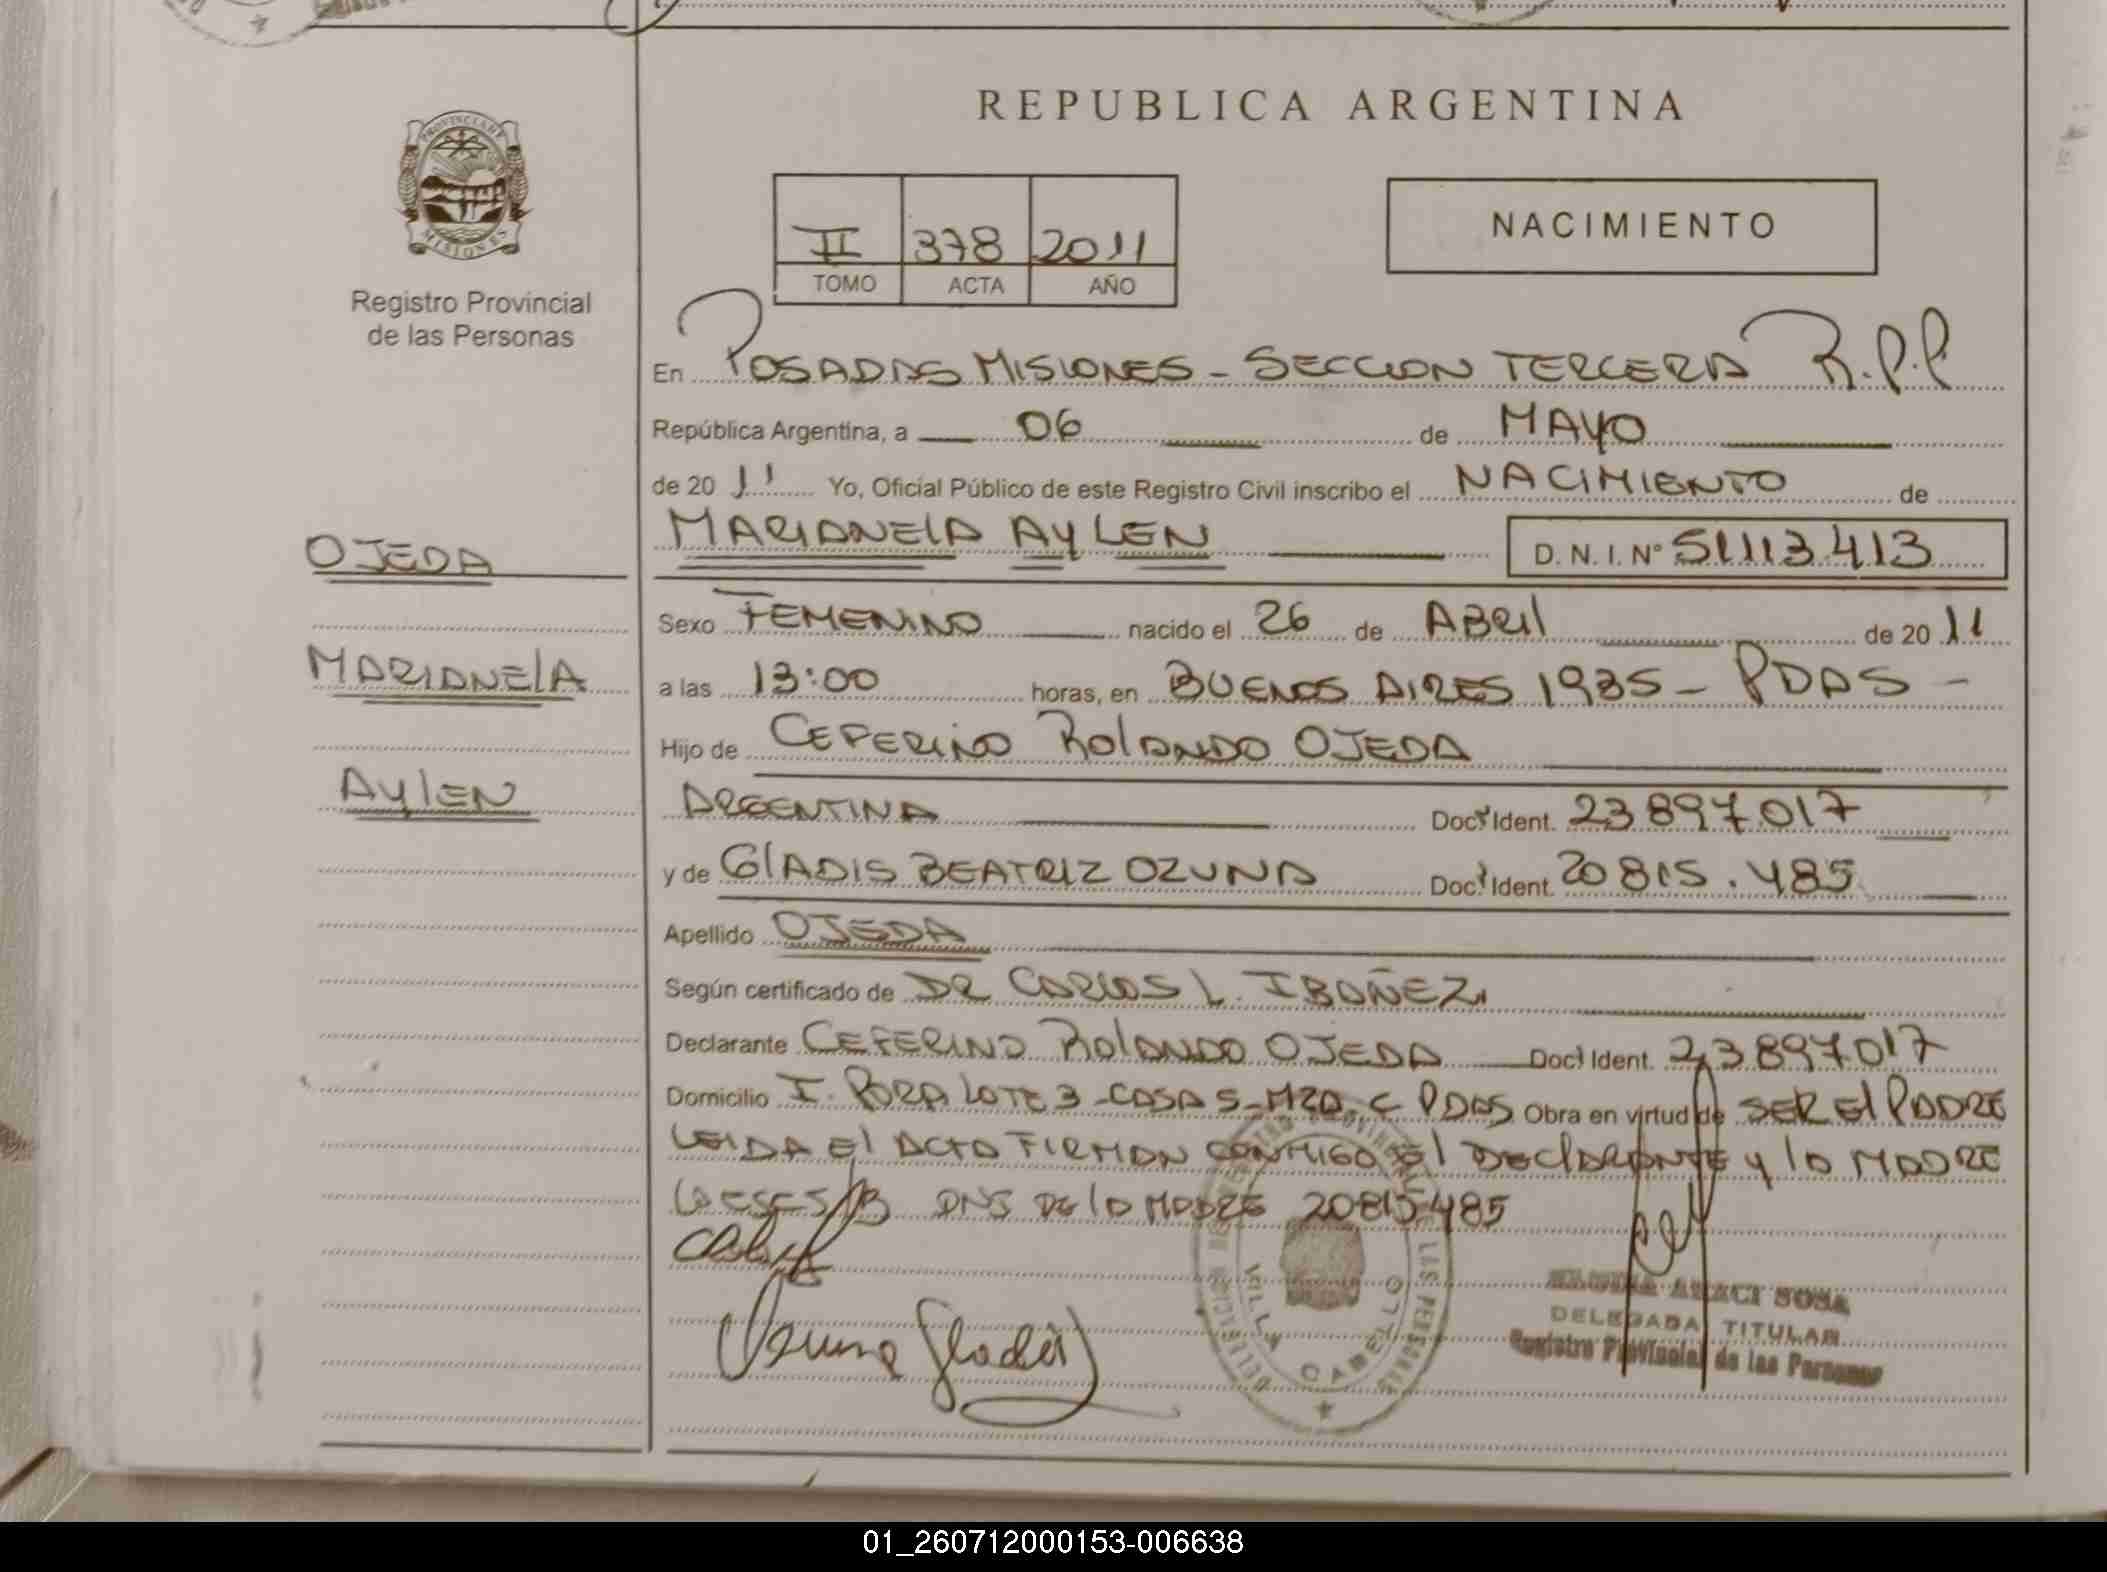 REPUBLICA ARGENTINA
PROVINCIA DE MISIONES
Registro Provincial
de las Personas
II 378 2011
TOMO ACTA AÑO
NACIMIENTO
En POSADAS MISIONES - SECCION TERCERA R.P.P
República Argentina, a 06 de MAYO
de 2011 Yo, Oficial Público de este Registro Civil inscribo el NACIMIENTO de
MARIANELA AYLEN D.N.I.Nº 51113.413
OJEDA
MARIANELA
AYLEN
Sexo FEMENINO nacido el 26 de ABRIL de 2011
a las 13:00 horas, en BUENOS AIRES 1985 - PDAS -
Hijo de CEFERINO ROLANDO OJEDA
ARGENTINA Doc. Ident. 23897017
y de GLADIS BEATRIZ OZUNA Doc. Ident. 20815.485
Apellido OJEDA
Según certificado de DR CARLOS L. IBAÑEZ
Declarante CEFERINO ROLANDO OJEDA Doc. Ident. 23897017
Domicilio I. PORA LOTE 3 - CASA 5 - MZA. C PDAS Obra en virtud de SER EL PADRE
LEIDA EL ACTA FIRMAN CONMIGO EL DECLARANTE Y LA MADRE
DNI DE LA MADRE 20815485
Ozuna Gladis
DELEGACION REGISTRO PROVINCIAL DE LAS PERSONAS
VILLA CABELLO
ARACI SOSA
DELEGADA TITULAR
Registro Provincial de las Personas
01_260712000153-006638